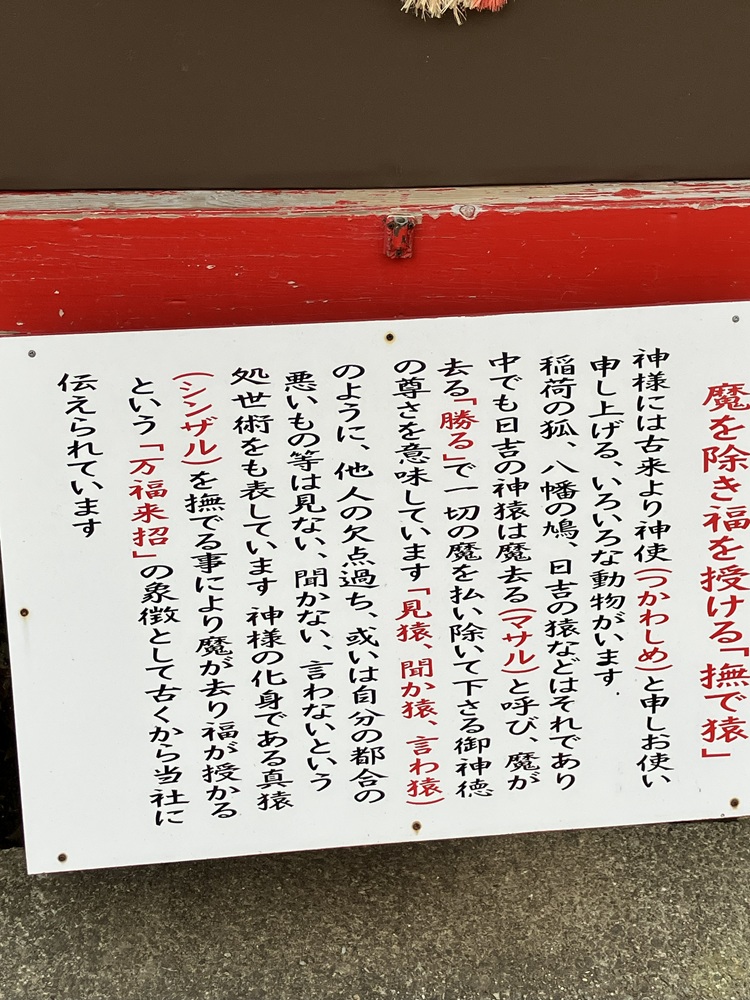 魔を除き福を授ける「撫で猿」
神様には古来より神使(つかわしめ)と申しお使い
申し上げる、いろいろな動物がいます.
稲荷の狐、八幡の鳩、日吉の猿などはそれであり
中でも日吉の神猿は魔去る(マサル)と呼び、魔が
去る「勝る」で一切の魔を払い除いて下さる御神徳
の尊さを意味しています「見猿、聞か猿、言わ猿)
のように、他人の欠点過ち、或いは自分の都合の
悪いもの等は見ない、聞かない、言わないという
処世術をも表しています 神様の化身である真猿
(シンザル)を撫でる事により魔が去り福が授かる
という「万福来招」の象徴として古くから当社に
伝えられています